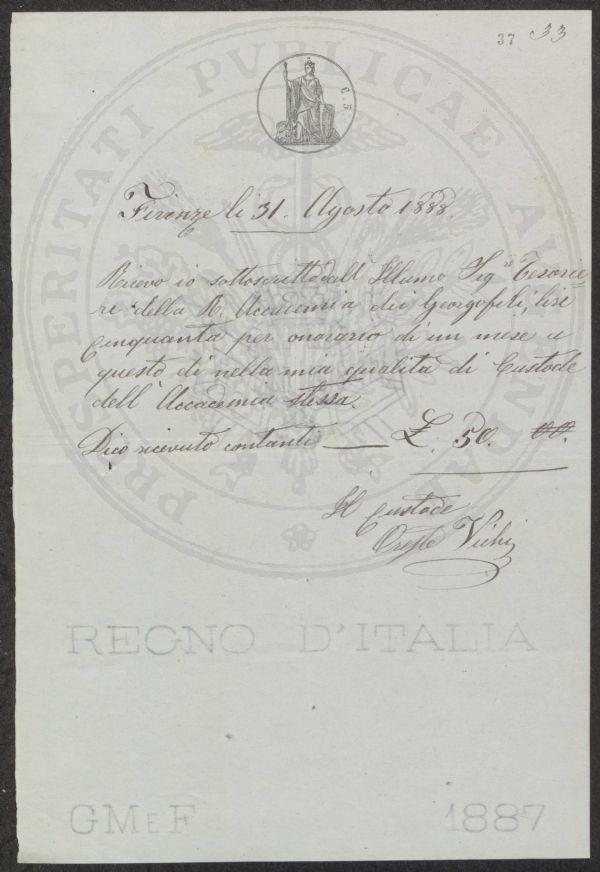 37 33
C. 5.
Firenze li 31. Agosto 1888.
Ricevo io sottoscritto dall' Illumo Sig.r Tesorie=
re della R. Accademia dei Georgofili, lire
Cinquanta per onorario di un mese a
questo dì nella mia qualità di Custode
dell' Accademia stessa.
Dico ricevuto contanti — £. 50. 00.
Il Custode
Oreste Vichi
PROSPERITATI PVBLICAE AVGENDAE
REGNO D'ITALIA
GMEF 1887